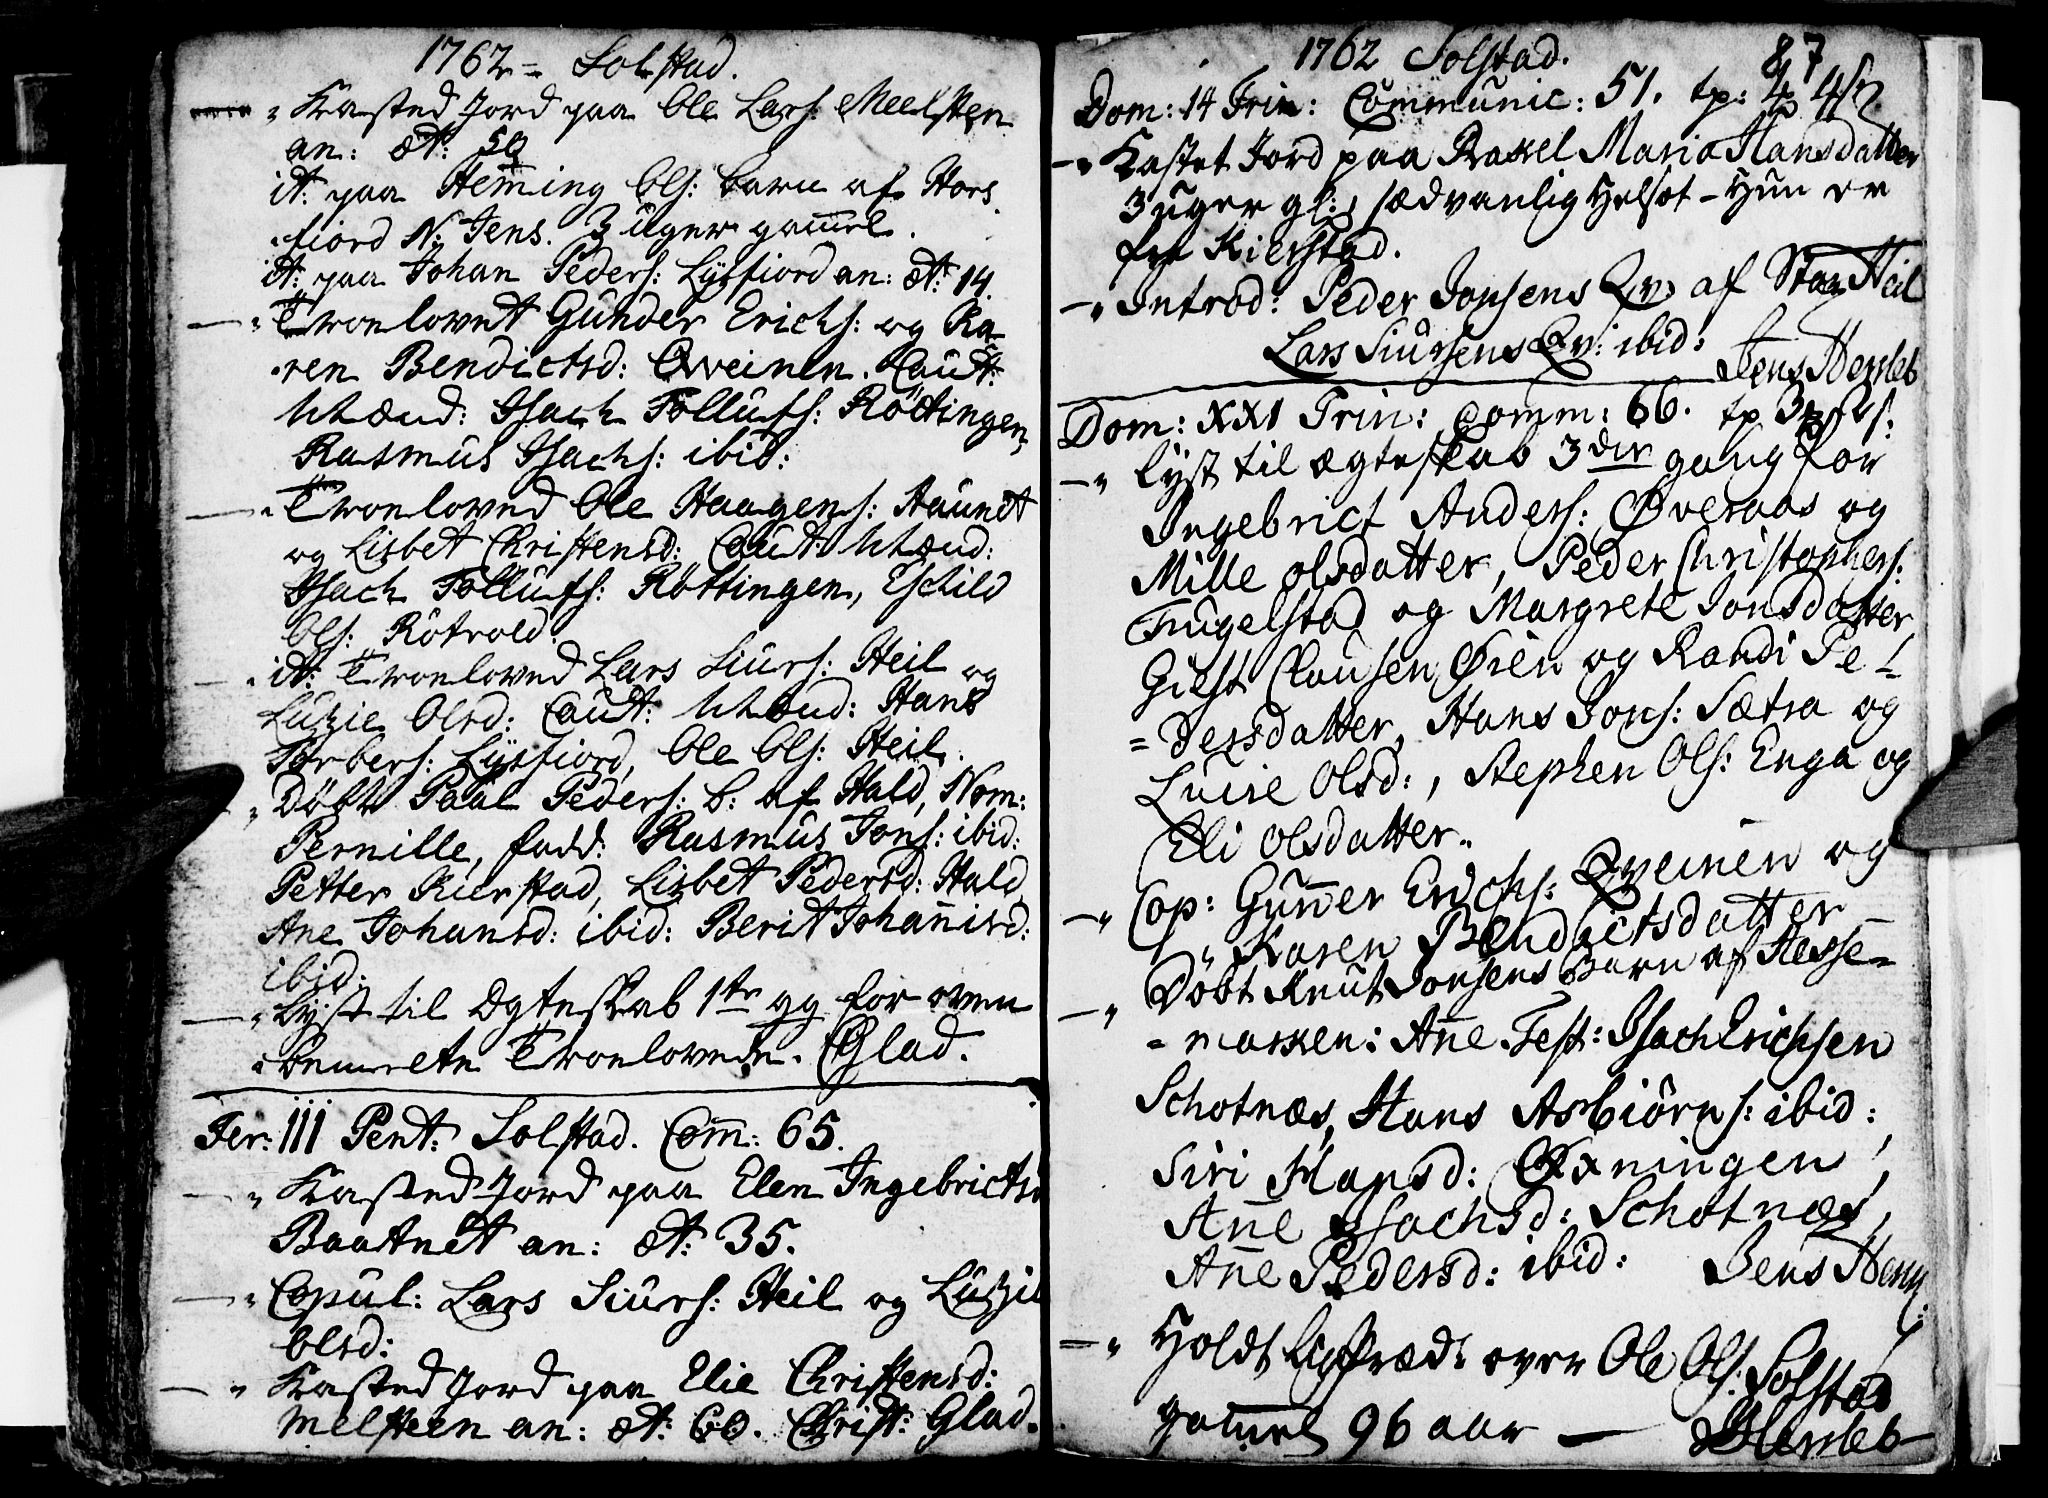 1762 = Solstad.
" Kasted Jord paa Ole Lars: Meelsten
an: æt: 50
it: paa Heming Ols: barn af Hors
fiord N: Jens. 3 uger gam̅el.
it: paa Johan Peders: Lysfiord an: æt: 14.
—" Troelovet Gunder Erichs: og Ka-
ren Bendictsd: Qveinen. Caut:
Mænd: Isach Tollufs: Röttingen,
Rasmus Isachs: ibid:
—" Troeloved Ole Haagens: Haunet
og Lisbet Christensd: Caut: Mænd:
Isach Tollufs: Röttingen, Eschild
Ols: Rötvold.
—" it: Troeloved Lars Siurs: Heil og
Lutzie Olsd: Caut: Mænd: Hans
Torbers: Lysfiord, Ole Ols: Heil.
" Döbt Paal Peders: b: af Hald, Nom:
Pernille, fadd: Rasmus Jons: ibid:
Petter Kierstad, Lisbet Pedersd: Hald
Ane Johansd: ibid: Berit Johan̅isd:
ibid:
—" Lyst til Ægteskab 1te gg for oven
benevnte Troelovede. CGlad.
Fer: III Pent: Solstad. Com̅: 65.
—" Kasted Jord paa Elen Ingebrictsd
Baatnet an: æt: 35.
—" Copul: Lars Siurs: Heil og Lutzie
Olsd:
—" Kasted Jord paa Elie Christensd:
Melsteen an: æt: 60. Christ: Glad.
1762 Solstad. 87
Dom: 14 Trin: Communic: 51. tp:
—" Kastet Jord paa Rakel Maria Hansdatter
3 uger gl:, sædvanlig Helsot - Hun er
fra Kierstad.
—" Introd: Peder Jonsens Qv: af Stor Heil
Lars Siursens Qv: ibid: Jens Hersleb
Dom: XXI Trin: Comm: 66. tp
—" lyst til ægteskab 3die gang for
Ingebrict Anders: Øveraas og
Mille Olsdatter, Peder Christophers:
Fugelstad og Margrete Jonsdatter,
Giest Clausen Øien og Randi Pe-
=dersdatter, Hans Jons: Sætra og
Lucie Olsd:, Stephen Ols: Enga og
Eli Olsdatter.
—" Cop: Gun̅er Erichs: Qveinen og
" Karen Bendictsdatter —
—" Döbt Knut Jonsens Barn af Hesse=
=marken: An̅e Test: Isach Erichsen
Schotnæs, Hans Asbiörns: ibid:
Siri Hansd: Øxningen,
An̅e Isachsd: Schotnæs,
An̅e Pedersd: ibid: Jens Hersl:
—" Holdt Ligpræd: over Ole Ols: Solstad
gam̅el 96 aar — JHersleb